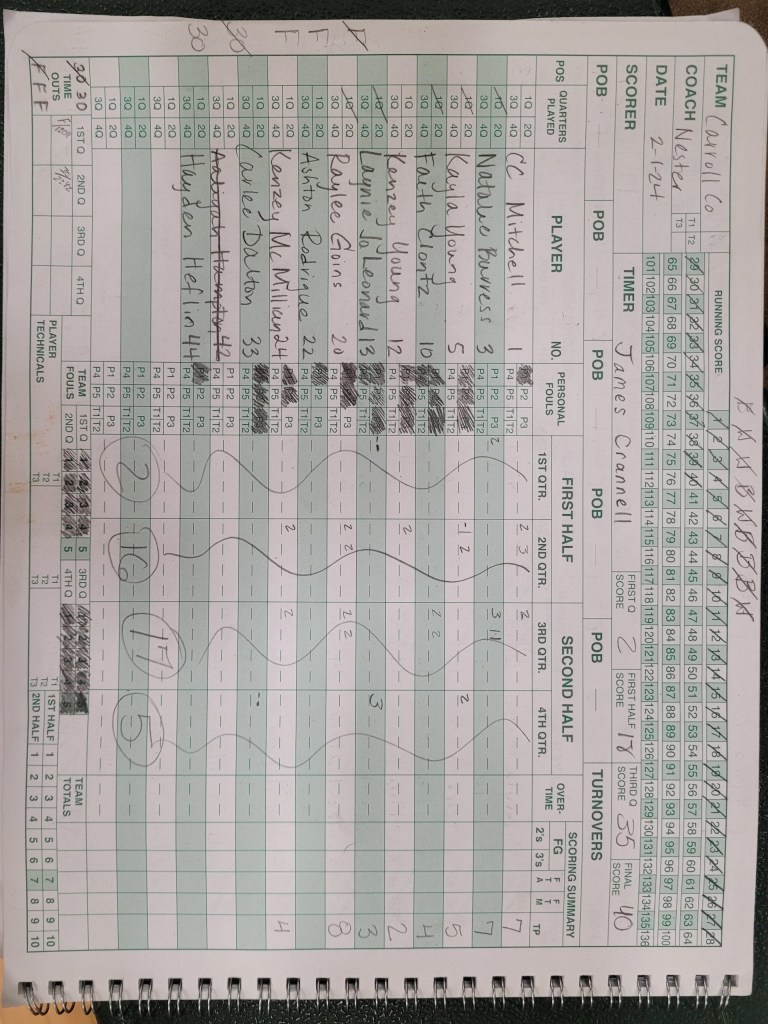 TEAM Carroll Co T1 T2 RUNNING SCORE 1 2 3 4 5 6 7 8 9 10 11 12 13 14 15 16 17 18 19 20 21 22 23 24 25 26 27 28
COACH Nester T3 29 30 31 32 33 34 35 36 37 38 39 40 41 42 43 44 45 46 47 48 49 50 51 52 53 54 55 56 57 58 59 60 61 62 63 64
DATE 2-1-24 65 66 67 68 69 70 71 72 73 74 75 76 77 78 79 80 81 82 83 84 85 86 87 88 89 90 91 92 93 94 95 96 97 98 99 100
101 102 103 104 105 106 107 108 109 110 111 112 113 114 115 116 117 118 119 120 121 122 123 124 125 126 127 128 129 130 131 132 133 134 135 136
SCORER TIMER James Crannell FIRST Q SCORE 2 FIRST HALF SCORE 18 THIRD Q SCORE 35 FINAL SCORE 40
POB POB POB POB POB TURNOVERS
POS QUARTERS PLAYED PLAYER NO. PERSONAL FOULS FIRST HALF SECOND HALF OVER-TIME SCORING SUMMARY
1ST QTR. 2ND QTR. 3RD QTR. 4TH QTR. FG 2's 3's FTA FTM TP
1Q 2Q 3Q 4Q CC Mitchell 1 P2 P3 P4 P5 T1 T2 2 3 2 7
1Q 2Q 3Q 4Q Natalie Burress 3 P1 P2 P3 P4 P5 T1 T2 2 3 11 7
1Q 2Q 3Q 4Q Kayla Young 5 P4 P5 T1 T2 -1 2 2 5
1Q 2Q 3Q 4Q Faith Clontz 10 P4 P5 T1 T2 2 2 4
1Q 2Q 3Q 4Q Kenzey Young 12 T1 T2 2 2
1Q 2Q 3Q 4Q Laynie Jo Leonard 13 P4 P5 T1 T2 -- 3 3
1Q 2Q 3Q 4Q Raylee Goins 20 P4 P5 T1 T2 2 2 2 2 8
1Q 2Q 3Q 4Q Ashton Rodrigue 22 P2 P3 P4 P5 T1 T2
1Q 2Q 3Q 4Q Kenzey McMillian 24 P3 P4 P5 T1 T2 2 2 4
1Q 2Q 3Q 4Q Carlee Dalton 33 T1 T2 --
1Q 2Q 3Q 4Q Aaliyah Hampton 42 P1 P2 P3 P4 P5 T1 T2
1Q 2Q 3Q 4Q Hayden Heflin 44 P2 P3 P4 P5 T1 T2
1Q 2Q 3Q 4Q P1 P2 P3 P4 P5 T1 T2
1Q 2Q 3Q 4Q P1 P2 P3 P4 P5 T1 T2 2 16 17 5
1Q 2Q 3Q 4Q P1 P2 P3 P4 P5 T1 T2
30 30 TIME OUTS 1ST Q 2ND Q 3RD Q 4TH Q TEAM FOULS 1ST Q 1 2 3 4 5 3RD Q 1 2 3 4 5 TEAM TOTALS
F F F 2ND Q 1 2 3 4 5 4TH Q 1 2 3 4 5
PLAYER TECHNICALS T1 T2 T3 T1 T2 T3 T1 T2 T3 1ST HALF 1 2 3 4 5 6 7 8 9 10
2ND HALF 1 2 3 4 5 6 7 8 9 10
F F F 30 30